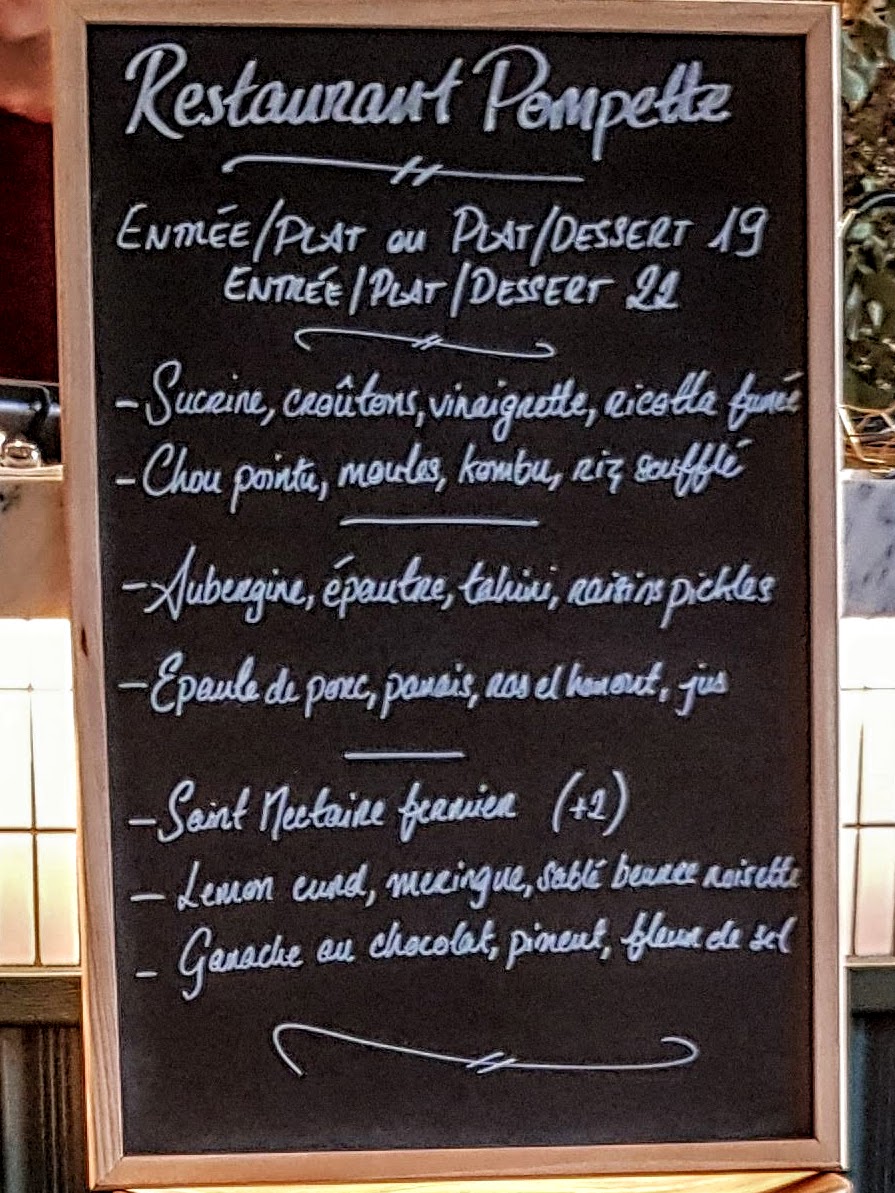 Restaurant Pompette
ENTRÉE/PLAT ou PLAT/DESSERT 19
ENTRÉE/PLAT/DESSERT 22
- Sucrine, croûtons, vinaigrette, ricotta fumée
- Chou pointu, moules, kombu, riz soufflé
- Aubergine, épautre, tahini, raisins pickles
- Epaule de porc, panais, ras el hanout, jus
- Saint Nectaire fermier (+2)
- Lemon curd, meringue, sablé beurre noisette
- Ganache au chocolat, piment, fleur de sel